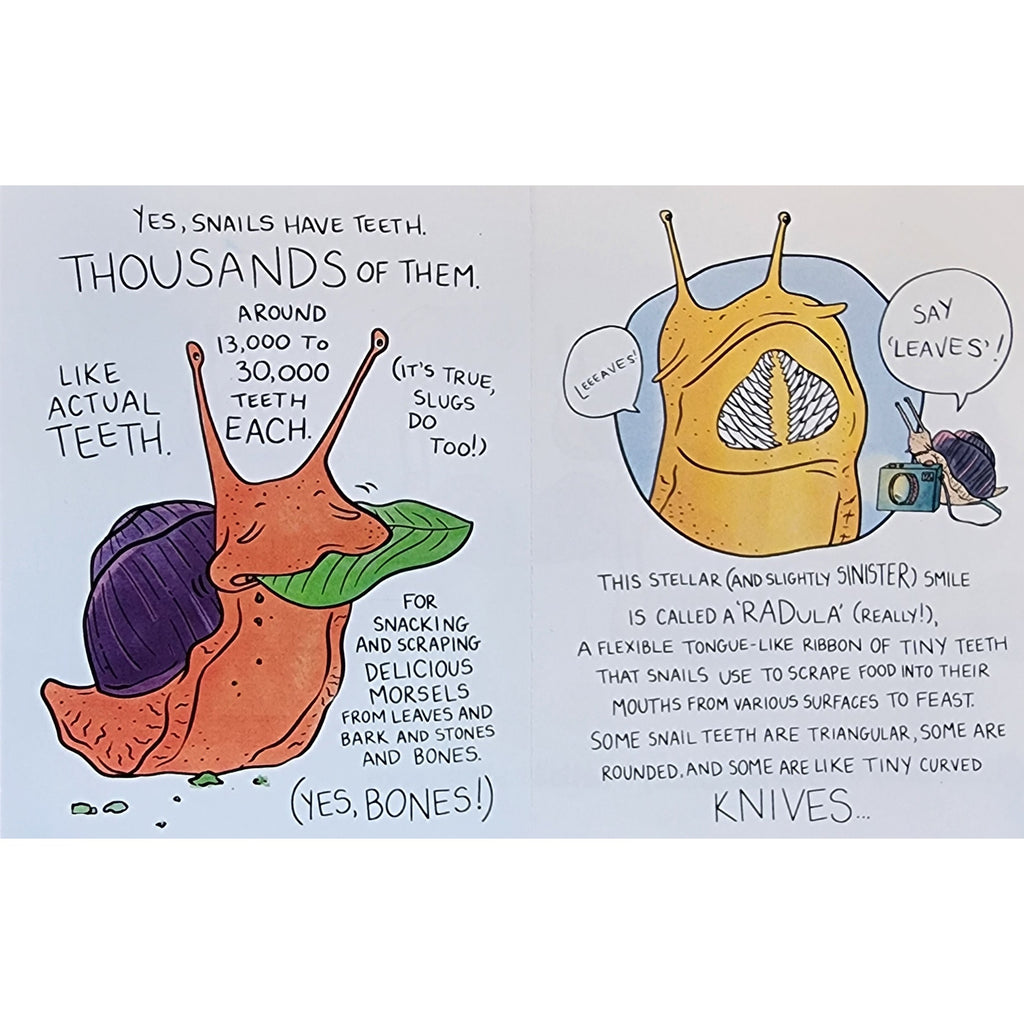 YES, SNAILS HAVE TEETH.
THOUSANDS OF THEM.
AROUND
13,000 TO
30,000
TEETH
EACH.
LIKE
ACTUAL
TEETH.
(IT'S TRUE,
SLUGS
DO
TOO!)
FOR
SNACKING
AND SCRAPING
DELICIOUS
MORSELS
FROM LEAVES AND
BARK AND STONES
AND BONES.
(YES, BONES!)
LEEEAVES!
SAY
'LEAVES'!
THIS STELLAR (AND SLIGHTLY SINISTER) SMILE
IS CALLED A 'RADULA' (REALLY!),
A FLEXIBLE TONGUE-LIKE RIBBON OF TINY TEETH
THAT SNAILS USE TO SCRAPE FOOD INTO THEIR
MOUTHS FROM VARIOUS SURFACES TO FEAST.
SOME SNAIL TEETH ARE TRIANGULAR, SOME ARE
ROUNDED, AND SOME ARE LIKE TINY CURVED
KNIVES...